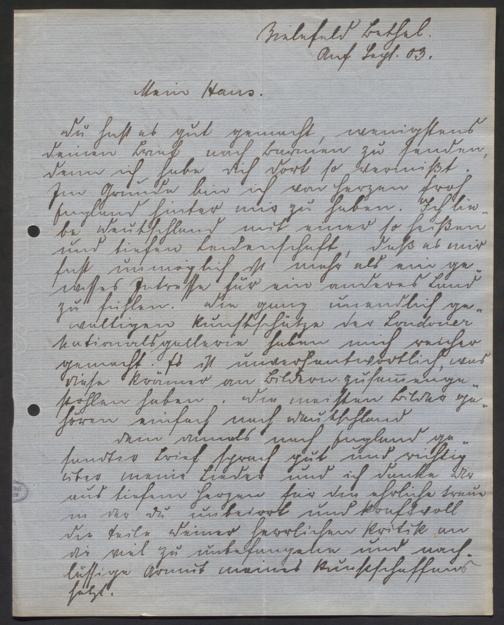 Bielefeld Bethel.
Anf Sept. 03.
Mein Hans.
Du hast es gut gemacht, wenigstens
deinen Brief nach Barmen zu senden,
denn ich habe dich dort so vermißt.
Im Grunde bin ich von Herzen froh
England hinter mir zu haben. Ich lie-
be Deutschland mit einer so heißen
und tiefen Leidenschaft, daß es mir
fast unmöglich ist mehr als ein ge-
wisses Interesse für ein anderes Land
zu fühlen. Die ganz unendlich ge-
waltigen Kunstschätze der Londoner
Nationalgallerie haben mich reicher
gemacht. Es ist unverantwortlich, was
diese Krämer an Bildern zusammenge-
stohlen haben. Die meisten Bilder ge-
hören einfach nach Deutschland
Dein nach England ge-
sandter Brief sprach gut und richtig
über meine Lieder und ich danke dir
aus tiefem Herzen für die ehrliche Treue
in der du und kraftvoll
die Teile deiner herrlichen Kritik an
die viel zu unbefangene und nach-
lässige meines Kunstschaffens
setzt.